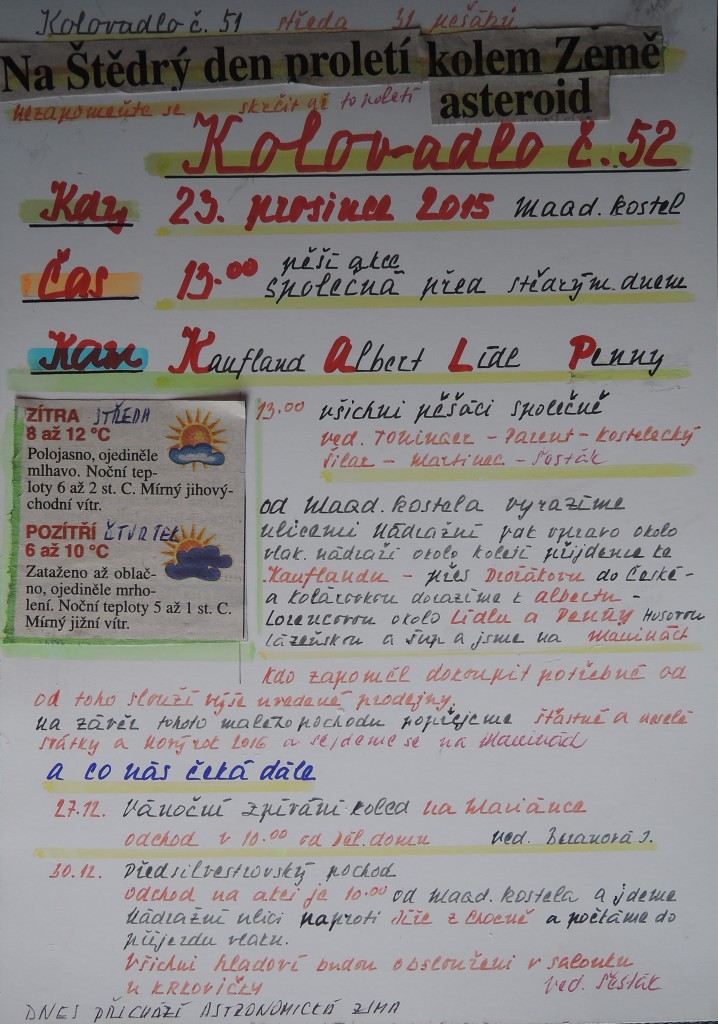 Kolovadlo č. 51 středa 31 pěšáků
Na Štědrý den proletí kolem Země
asteroid
nezapomeňte se skrčit až to poletí
Kolovadlo č. 52
Kdy 23. prosince 2015 Maad. kostel
Čas 13.00 pěší akce
společná před štědrým. dnem
Kam Kaufland Albert Lidl Penny
13.00 všichni pěšáci společně
ved. Toninger - Parent - Kostelecký
Pilař - Martinec - Šesták
ZÍTRA STŘEDA
8 až 12 °C
Polojasno, ojediněle
mlhavo. Noční tep-
loty 6 až 2 st. C. Mírný jihový-
chodní vítr.
POZÍTŘÍ ČTVRTEK
6 až 10 °C
Zataženo až oblač-
no, ojediněle mrho-
lení. Noční teploty 5 až 1 st. C.
Mírný jižní vítr.
od Maad. kostela vyrazíme
ulicemi Nádražní pak vpravo okolo
vlak. nádraží okolo kolejí přijdeme ke
Kauflandu - přes Dvořákovu do České -
a Kolárovkou dorazíme k albertu -
Lorencovou okolo Lídlu a Penny Husovou
Lázeňskou a šup a jsme na Maninách
Kdo zapoměl dokoupit potřebné od
od toho slouží výše uvedené prodejny.
na závěr tohoto malého pochodu popřejeme šťastné a veselé
svátky a Nový rok 2016 a sejdeme se na Maninách
a co nás čeká dále
27.12. Vánoční zpívání koled na Mariánce
odchod v 10.00 od Děl. domu ved. Beranová J.
30.12. Předsilvestrovský pochod
odchod na akci je 10.00 od Maad. kostela a jdeme
Nádražní ulicí naproti Jiře z Chocně a počkáme do
příjezdu vlaku.
Všichni hladoví budou obslouženi v salonku
u Krkovičky ved. Šesták
DNES PŘICHÁZÍ ASTRONOMICKÁ ZIMA